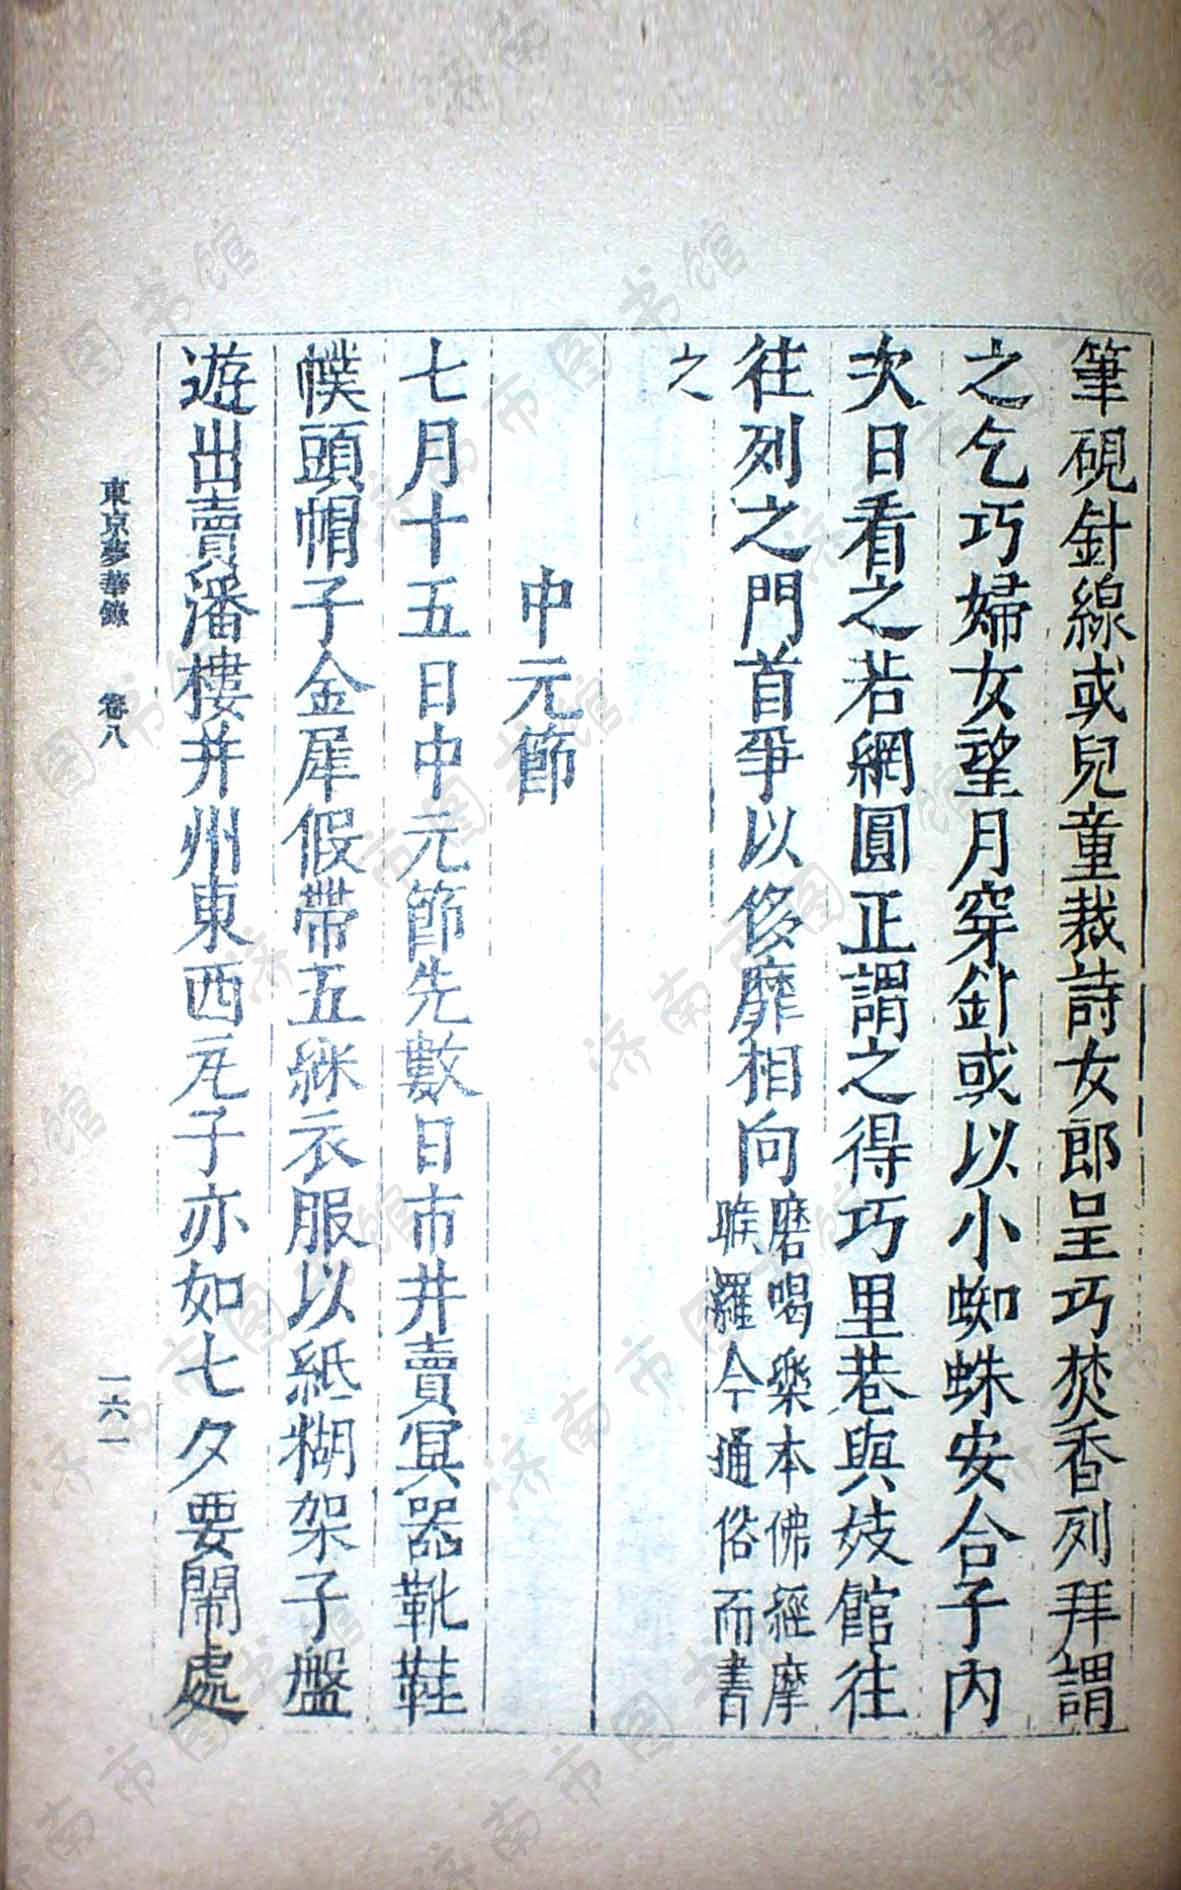 筆硯針線或兒童裁詩女郎呈巧焚香列拜謂
之乞巧婦女望月穿針或以小蜘蛛安合子內
次日看之若網圓正謂之得巧里巷與妓館往
往列之門首爭以侈靡相向磨喝樂本佛經摩
睺羅今通俗而書
之
中元節
七月十五日中元節先數日市井賣冥器靴鞋
幞頭帽子金犀假帶五綵衣服以紙糊架子盤
遊出賣潘樓并州東西瓦子亦如七夕要鬧處
東京夢華錄 卷八 一六一
济南市图书馆